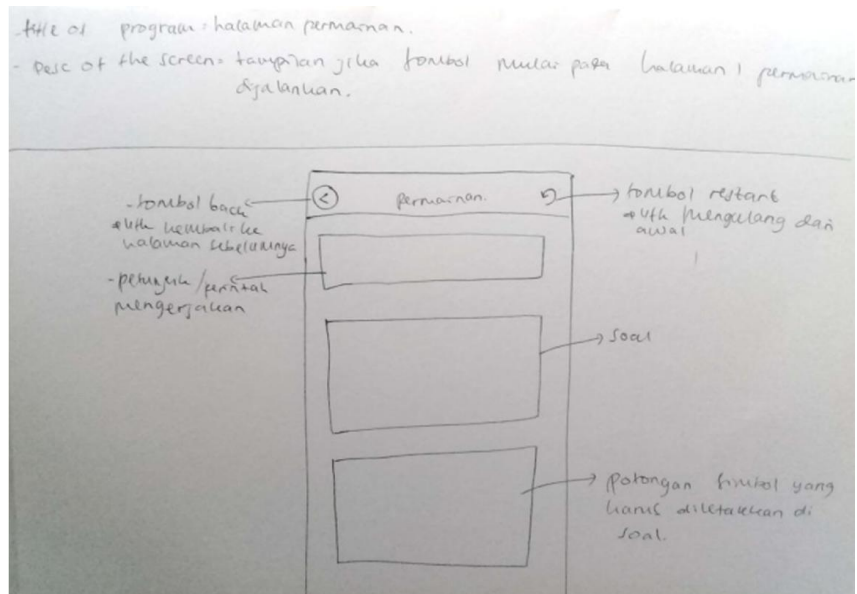 - title of program : halaman permainan.
- Desc of the screen = tampilan jika tombol mulai pada halaman 1 permainan
dijalankan.
- tombol back
utk kembali ke
halaman sebelumnya
- petunjuk / perintah
mengerjakan
permainan.
tombol restart
utk mengulang dari
awal
soal
potongan simbol yang
harus diletakkan di
soal.